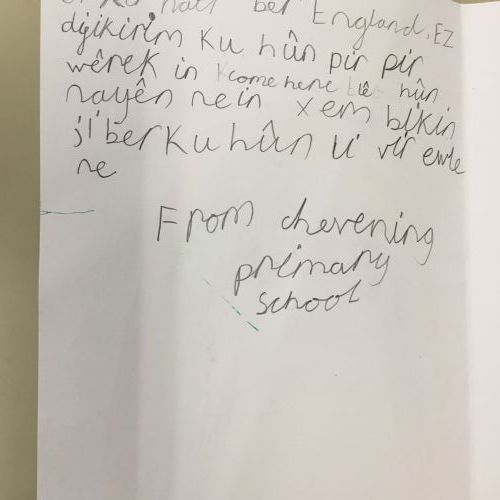 ber England, EZ
dijikirim ku hûn pir pir
wêrek in come here hûn
nayên nein xem bikin
ji ber ku hûn li vir ewle
ne
From chevening
primary
school